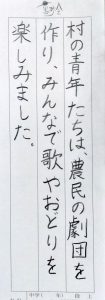 村の青年たちは、農民の劇団を
作り、みんなで歌やおどりを
楽しみました。